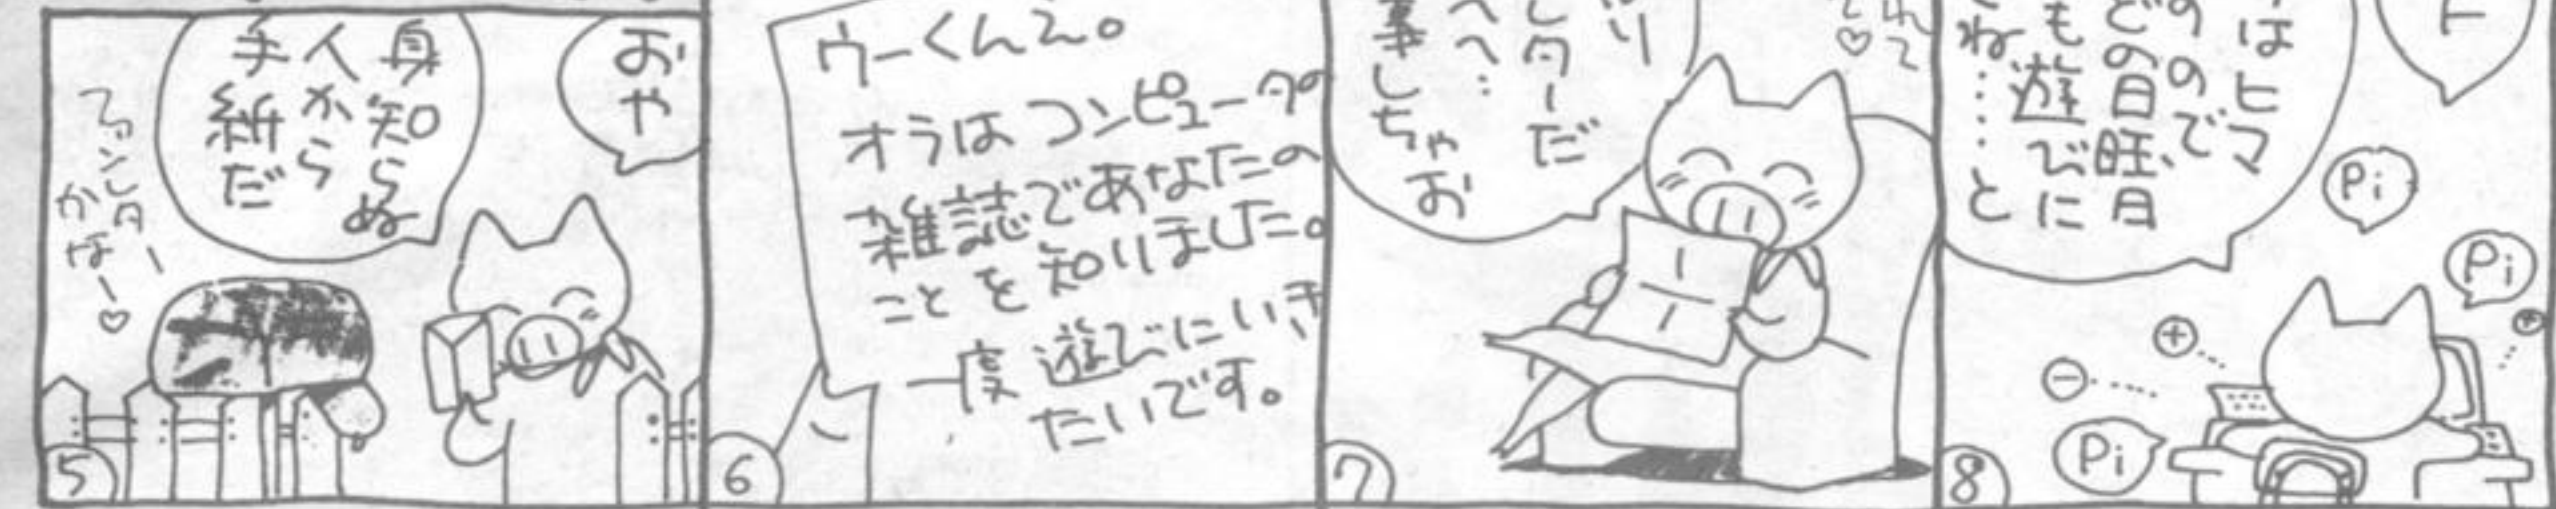 おや
身知らぬ
人から
手紙だ
ファンレター
かなー♡
5
ウーくんえ。
オラはコンピュータの
雑誌であなたの
ことを知りました。
一度遊びにいき
たいです。
6
れて
て♡
り
レターだ
へへ…
事しちゃお
7
ト
はヒマ
のので、
どの日旺日
も遊びに
ね……と
Pi
Pi
+
−
Pi
8